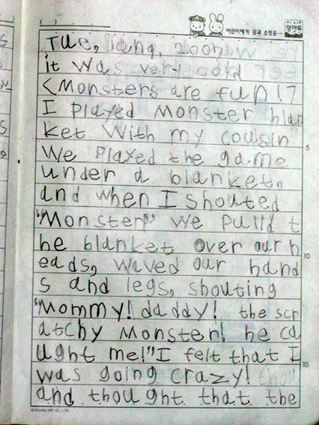 어린이에게 꿈과 소망을
Tue,
it was very
<Monsters are fun!7
I played Monster blan
ket with my cousin
We played the game
under a blanket.
and when I shouted
"Monster" we pulld t
he blanket over our h
eads, waved our hand
s and legs, shouting
"Mommy! daddy! the scr
atchy Monster! he ca
ught me!" I felt that I
was going crazy!
and thought that the
5
10
15